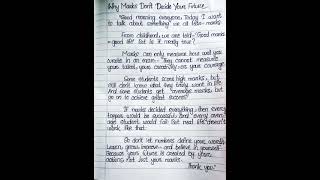 Why Marks Don't Decide Your Future
"Good morning everyone. Today I want
to talk about something we all fear - marks
From childhood, we are told "Good marks
= good life". But is it really true?
Marks can only measure how well you
wrote in an exam. They cannot measure
your talent, your creativity or your courage
Some students score high marks, but
still don't know what they truly want in life.
And some students get "average" marks, but
go on to achieve great success!
If marks decided everything, then every
topper would be successful. And "every aver-
age student would fail. But real life doesn't
work like that.
So don't let numbers define your worth.
Learn, grow, improve - and believe in yourself.
Because your future is created by your
actions, not just your marks.
Thank you"